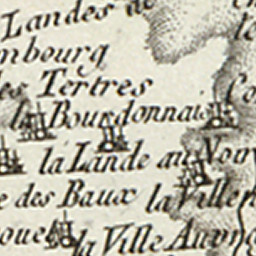 Landes de
mbourg
les Tertres
la Bourdonnais
la Lande au Nouv
e des Baux la Villen
oue la Ville Auvng